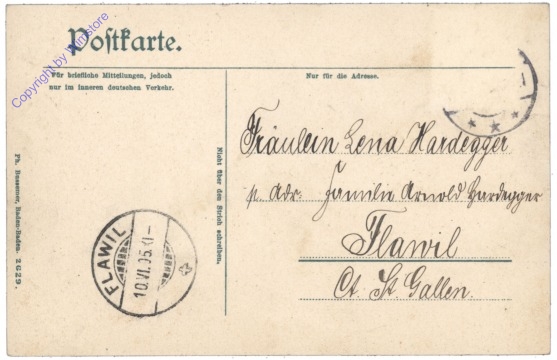 Postkarte.
Für briefliche Mitteilungen, jedoch
nur im inneren deutschen Verkehr.
Nur für die Adresse.
Copyright by wumstore
Fräulein Lena Hardegger
p. Adr. Familie Arnold Hardegger
Flawil
Ct. St. Gallen.
Nicht über den Strich schreiben.
Ph. Bussemer, Baden-Baden. 2629.
FLAWIL
10.VI.05.XI-